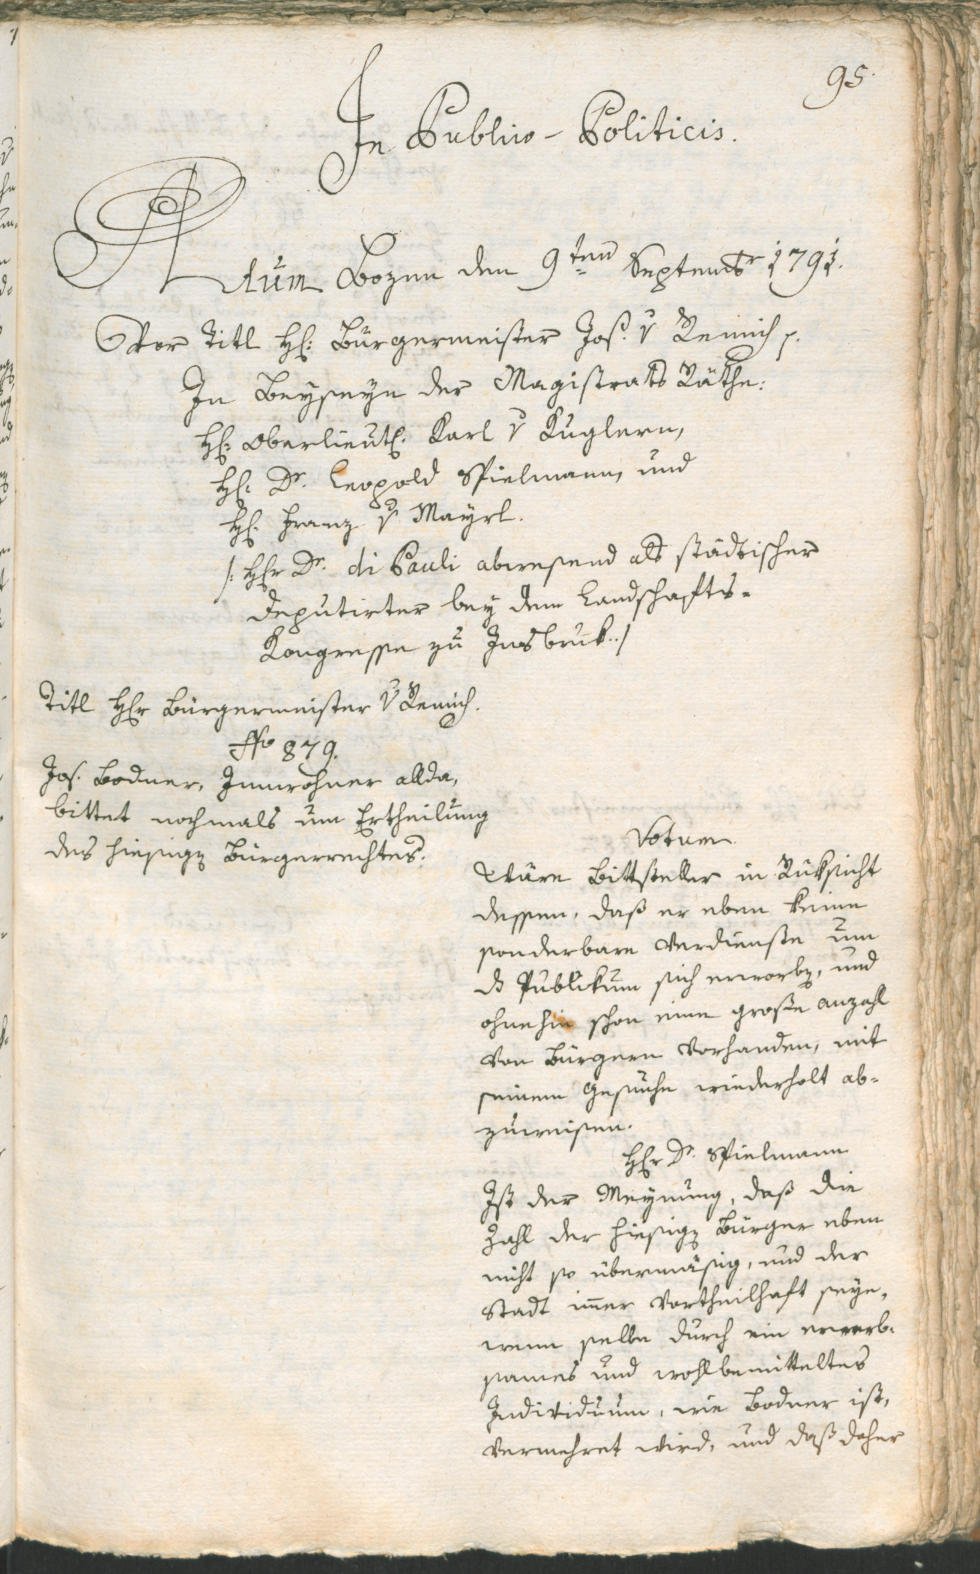 95.
In Publico-Politicis.
Actum Bozen den 9ten Septembr 1791.
Vor Titl H: Bürgermeister Jos. v Remich p.
In Beyseyn der Magistrats Räthe:
H: Oberlieut. Karl v Kuglern,
H: Dr. Leopold Spielmann, und
H: Franz v Mayrl.
/: Hr Dr. di Pauli abwesend als städtischer
Deputirter bey dem Landschafts-
Kongresse zu Insbruk. :/
Titl Hr Bürgermeister v Remich.
Nro 879.
Jos. Bodner, Innwohner allda,
bittet nochmals um Ertheilung
des hiesigen Bürgerrechtes.
Votum
Wäre Bittsteller in Rüksicht
dessen, daß er eben keine
sonderbare Verdienste um
ds Publikum sich erworben, und
ohnehin schon eine große Anzahl
von Bürgern vorhanden, mit
seinem Gesuche wiederholt ab-
zuweisen.
Hr Dr. Spielmann
Ist der Meynung, daß die
Zahl der hiesigen Bürger eben
nicht so übermäsig, und der
Stadt immer vortheilhaft seye,
wenn selbe durch ein erwerb-
sames und wohlbemitteltes
Individuum, wie Bodner ist,
vermehret wird, und daß daher